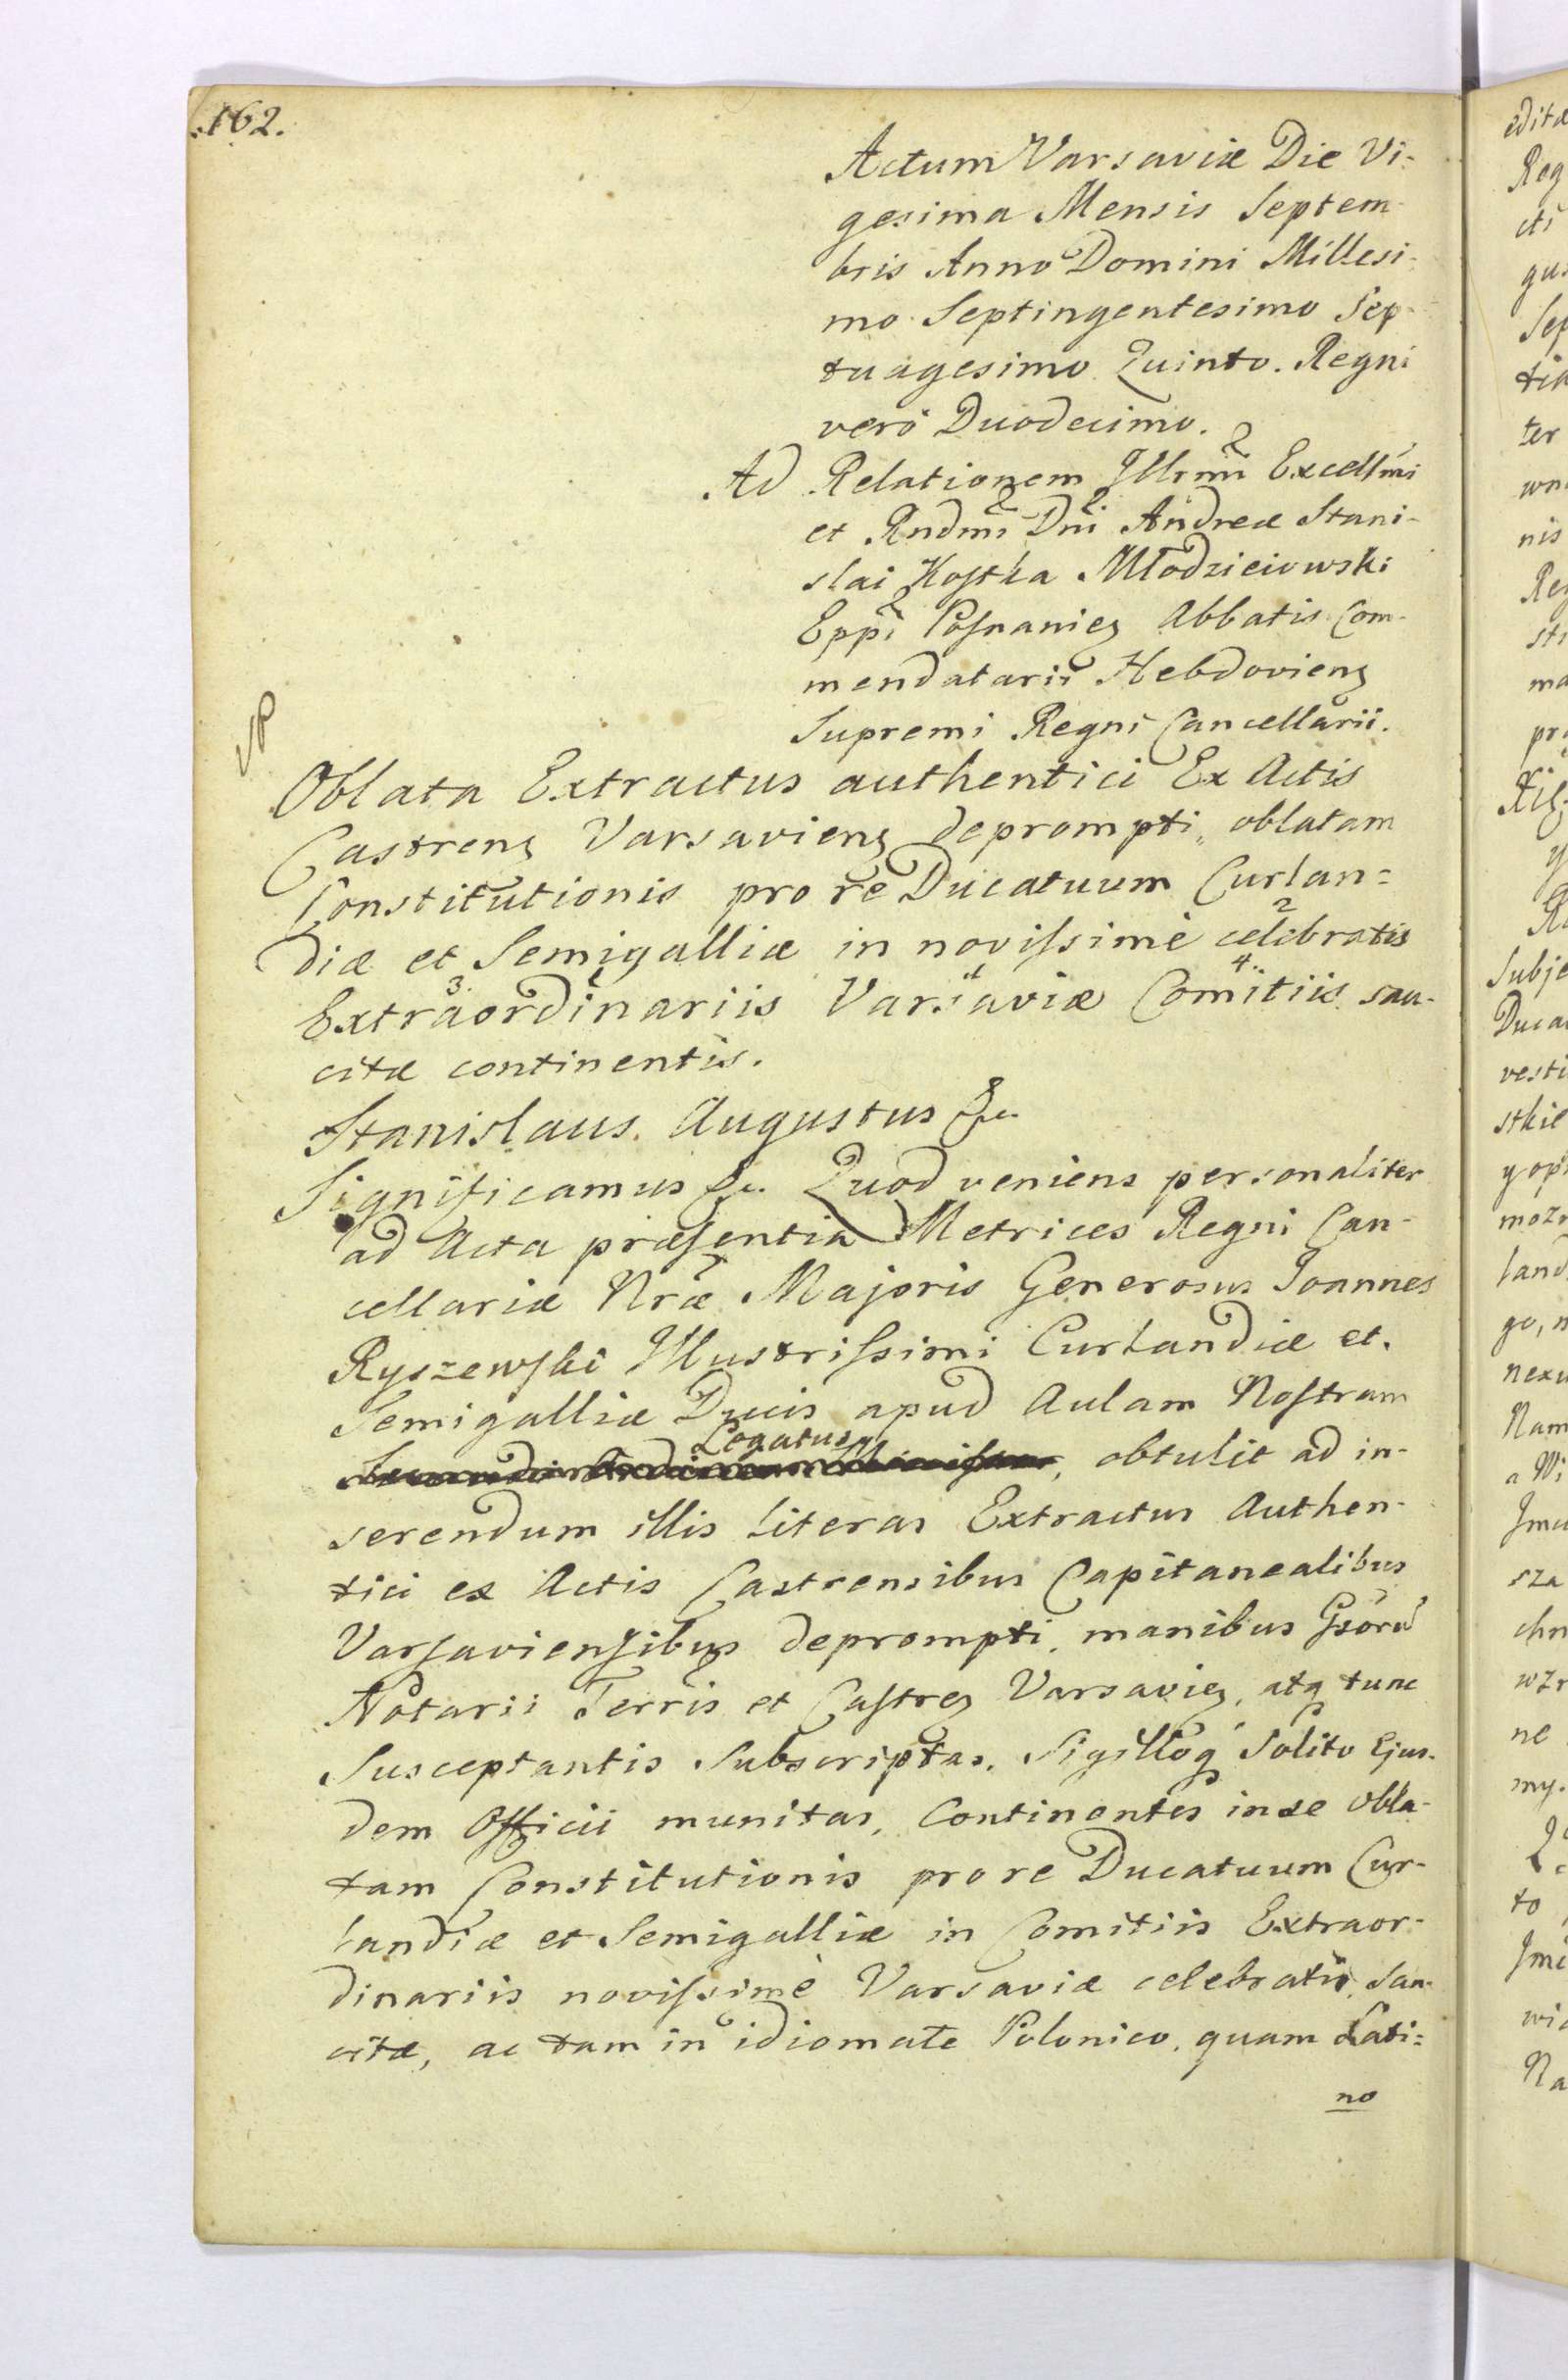 162.
Actum Varsaviæ Die Vi-
gesima Mensis Septem-
bris Anno Domini Millesi-
mo Septingentesimo Sep-
tuagesimo Quinto. Regni
verò Duodecimo.
Ad Relationem Illrmi Excellmi
et Rndmi Dni Andreæ Stani-
slai Kostka Młodzieiowski
Eppi Posnanien Abbatis Com-
mendatarii Hebdoviens
Supremi Regni Cancellarii.
Oblata Extractus authentici Ex Actis
Castrens Varsaviens deprompti, oblatam
Constitutionis pro re Ducatuum Curlan=
diæ et Semigalliæ in novissimè celebratis
Extraordinariis Varsaviæ Comitiis san-
citæ continentis.
Stanislaus Augustus &c.
Significamus &c. Quod veniens personaliter
ad Acta præsentia Metrices Regni Can-
cellariæ Nræ Majoris Generosus Joannes
Ryszewski Illustrissimi Curlandiæ et
Semigalliæ Ducis apud Aulam Nostram
Legatus, obtulit ad in-
serendum illis literas Extractus Authen-
tici ex Actis Castrensibus Capitanealibus
Varsaviensibus deprompti, manibus Gsorū
Notarii Terris et Castren Varsavien, atq tunc
Susceptantis Subscriptas. Sigilloq Solito Ejus-
dem Officii munitas, Continentes in se obla-
tam Constitutionis pro re Ducatuum Cur-
landiæ et Semigalliæ in Comitiis Extraor-
dinariis novissimè Varsaviæ celebratis, San-
citæ, ac tam in idiomate Polonico, quam Lati=
no